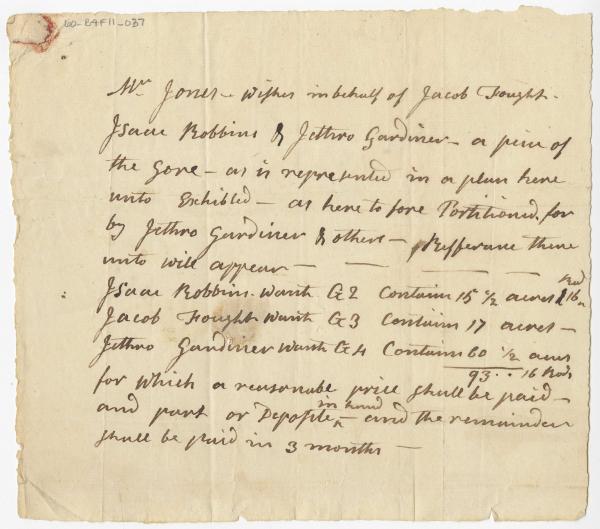 60-B4F11-037
Mr Jones — wishes in behalf of Jacob Fought —
Isaac Robbins & Jethro Gardiner — a peice of
the Gore — as is represented in a plan here
unto Exhibted — as here to fore Portitioned for
by Jethro Gardiner & others — Refferance there
unto will appear — — — —
Isaac Robbins want G 2 Contain 15 1/2 acres & 16 Rod
Jacob Fought want G 3 Contains 17 acres —
Jethro Gardiner want G 4 Contains 60 1/2 acres
93 .. 16 Rods
for which a reasonable price shall be paid —
and part or Deposite in hand — and the remainder
shall be paid in 3 months —